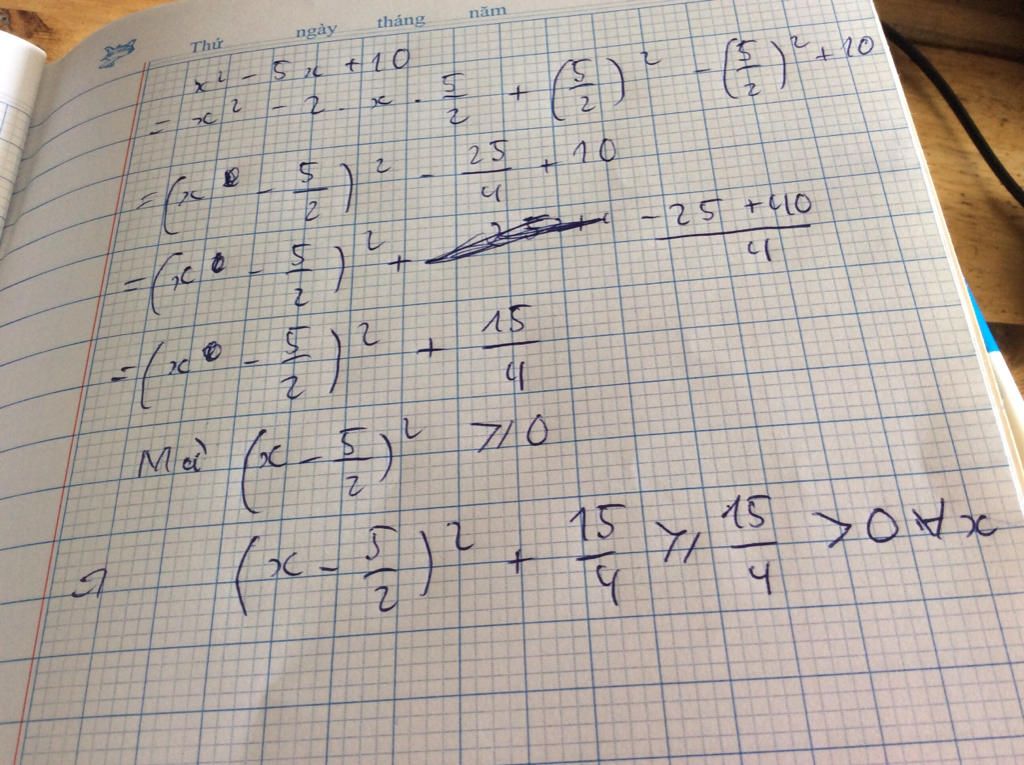 Thứ ngày tháng năm
x² - 5x + 10
= x² - 2 · x · 5/2 + (5/2)² - (5/2)² + 10
= (x - 5/2)² - 25/4 + 10
= (x - 5/2)² + (-25 + 40)/4
= (x - 5/2)² + 15/4
Mà (x - 5/2)² ≥ 0
(x - 5/2)² + 15/4 ≥ 15/4 > 0 ∀x